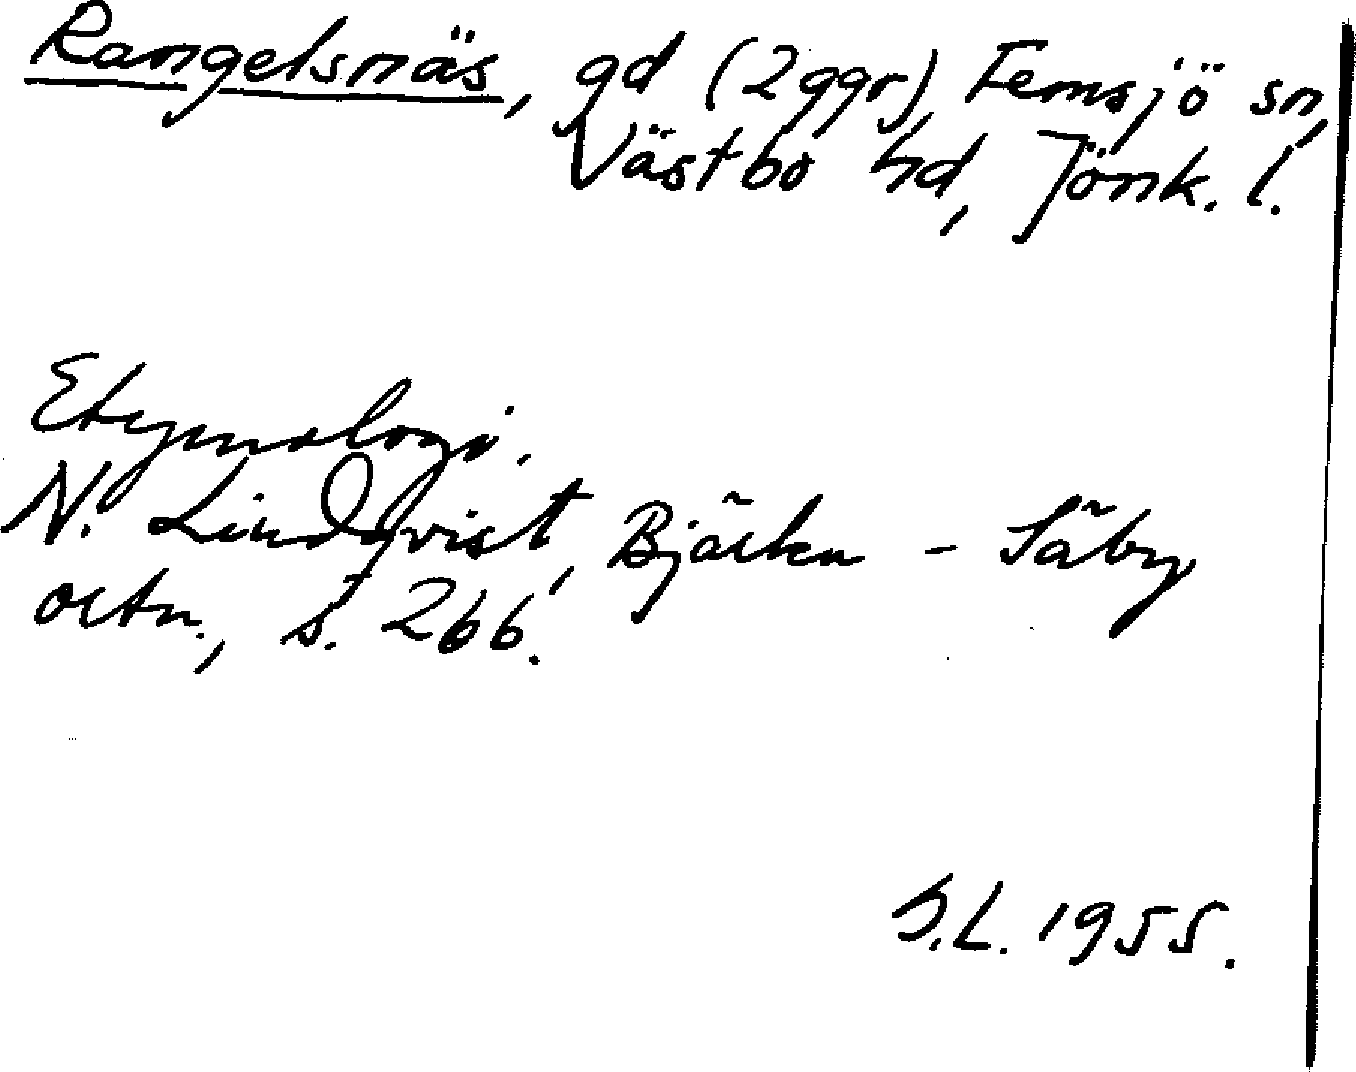 Rangelsnäs, gd (2ggr), Femsjö sn,
Västbo hd, Jönk. l.
Etymologi.
N. Lindqvist, Bjärka - Säby
ortn., s. 266.
S.L. 1955.